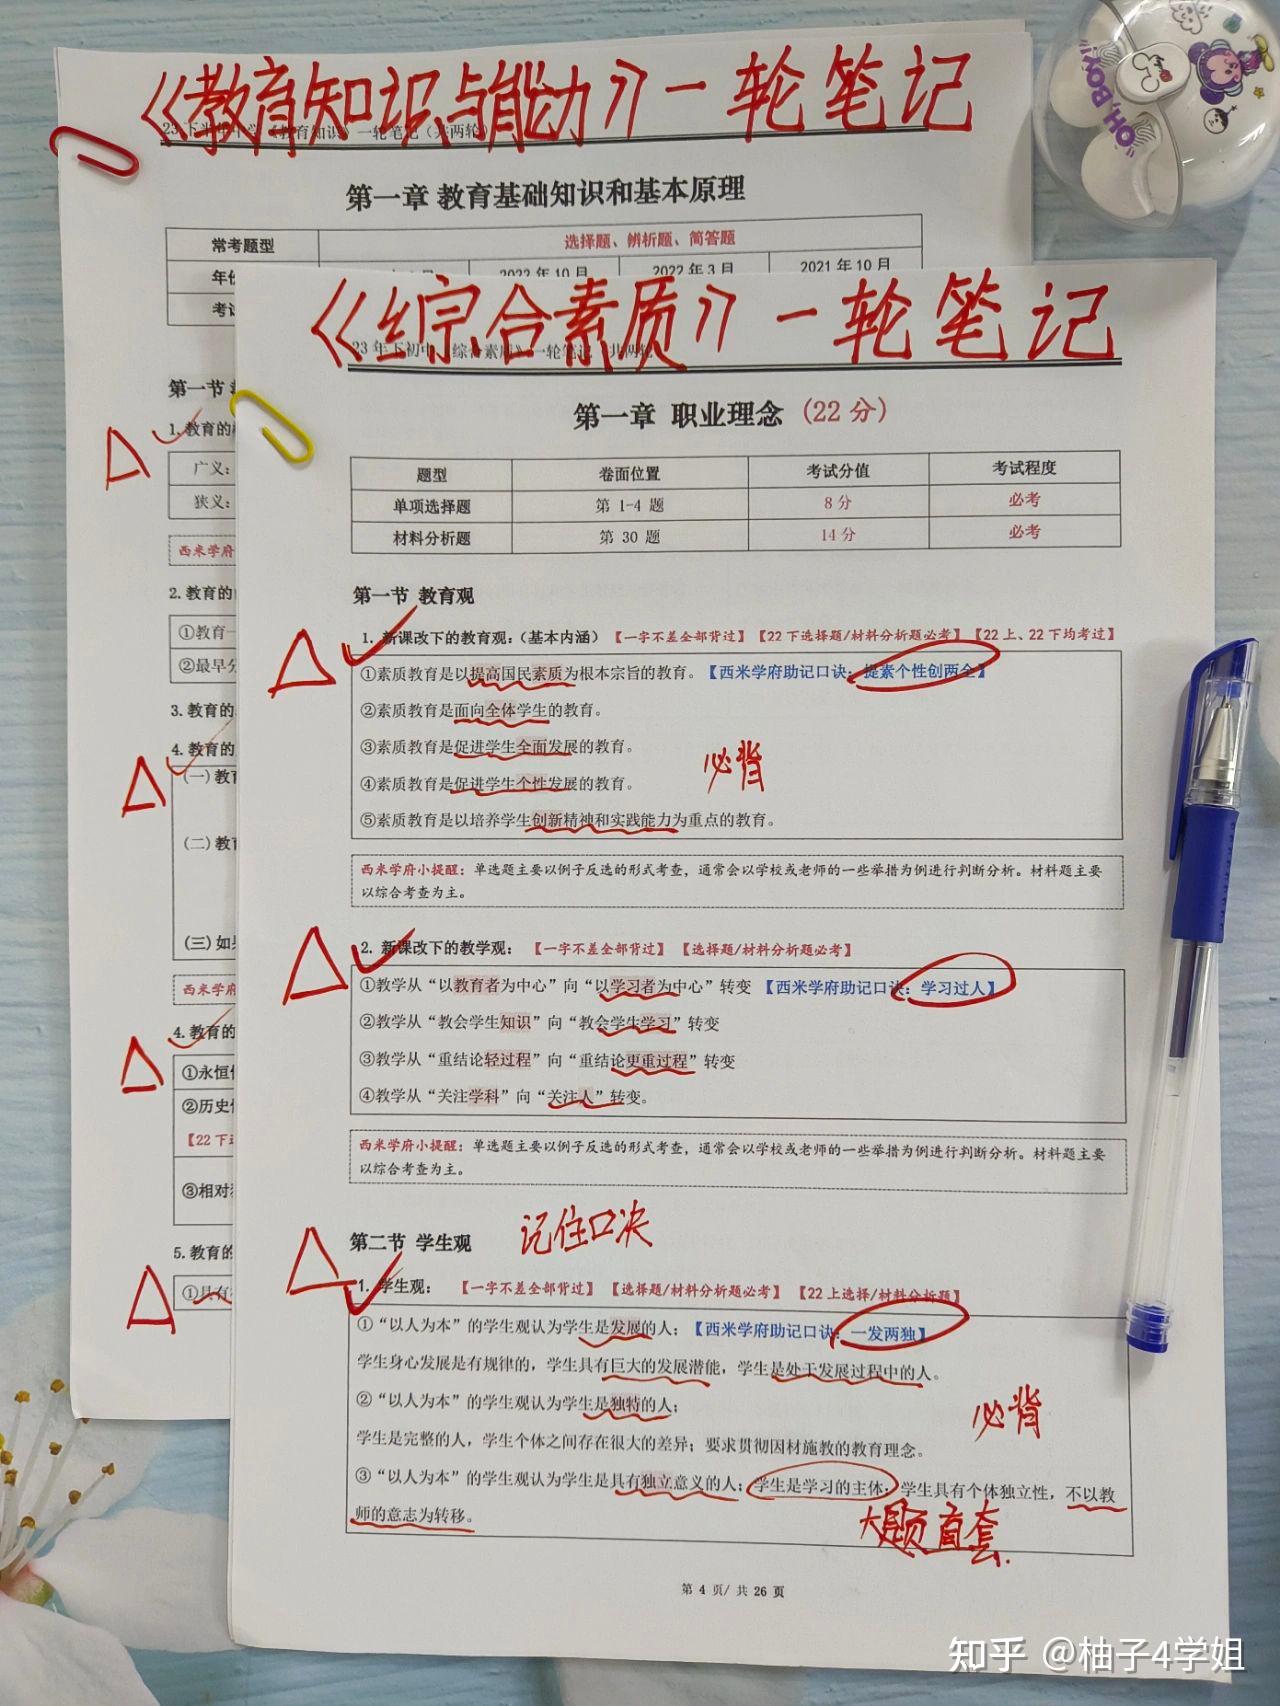 《教育知识与能力》一轮笔记
23下半年中学《教育知识》一轮笔记（共两轮）
第一章 教育基础知识和基本原理
常考题型 选择题、辨析题、简答题
2022年10月 2022年3月 2021年10月
第一节
1.教育的
广义：
狭义：
西米学府
2.教育的
①教育
②最早
3.教育的
4.教育的
(一)教育
(二)教育
(三)如果
西米学府
4.教育的
①永恒
②历史
【22下
③相对
5.教育的
①具有
《综合素质》一轮笔记
23年下初中《综合素质》一轮笔记（共两轮
第一章 职业理念（22分）
题型 卷面位置 考试分值 考试程度
单项选择题 第 1-4 题 8分 必考
材料分析题 第 30 题 14分 必考
第一节 教育观
1. 新课改下的教育观：（基本内涵）【一字不差全部背过】【22下选择题/材料分析题必考】【22上、22下均考过】
①素质教育是以提高国民素质为根本宗旨的教育。【西米学府助记口诀：提素个性创两全】
②素质教育是面向全体学生的教育。
③素质教育是促进学生全面发展的教育。
④素质教育是促进学生个性发展的教育。
必背
⑤素质教育是以培养学生创新精神和实践能力为重点的教育。
西米学府小提醒：单选题主要以例子反选的形式考查，通常会以学校或老师的一些举措为例进行判断分析。材料题主要
以综合考查为主。
2. 新课改下的教学观：【一字不差全部背过】【选择题/材料分析题必考】
①教学从“以教育者为中心”向“以学习者为中心”转变【西米学府助记口诀：学习过人】
②教学从“教会学生知识”向“教会学生学习”转变
③教学从“重结论轻过程”向“重结论更重过程”转变
④教学从“关注学科”向“关注人”转变。
西米学府小提醒：单选题主要以例子反选的形式考查，通常会以学校或老师的一些举措为例进行判断分析。材料题主要
以综合考查为主。
第二节 学生观 记住口决
1. 学生观：【一字不差全部背过】【选择题/材料分析题必考】【22上选择/材料分析题】
①“以人为本”的学生观认为学生是发展的人；【西米学府助记口诀：一发两独】
学生身心发展是有规律的，学生具有巨大的发展潜能，学生是处于发展过程中的人。
②“以人为本”的学生观认为学生是独特的人；
必背
学生是完整的人，学生个体之间存在很大的差异；要求贯彻因材施教的教育理念。
③“以人为本”的学生观认为学生是具有独立意义的人；学生是学习的主体；学生具有个体独立性，不以教
师的意志为转移。
大题首套
第 4 页/ 共 26 页
知乎 @柚子4学姐